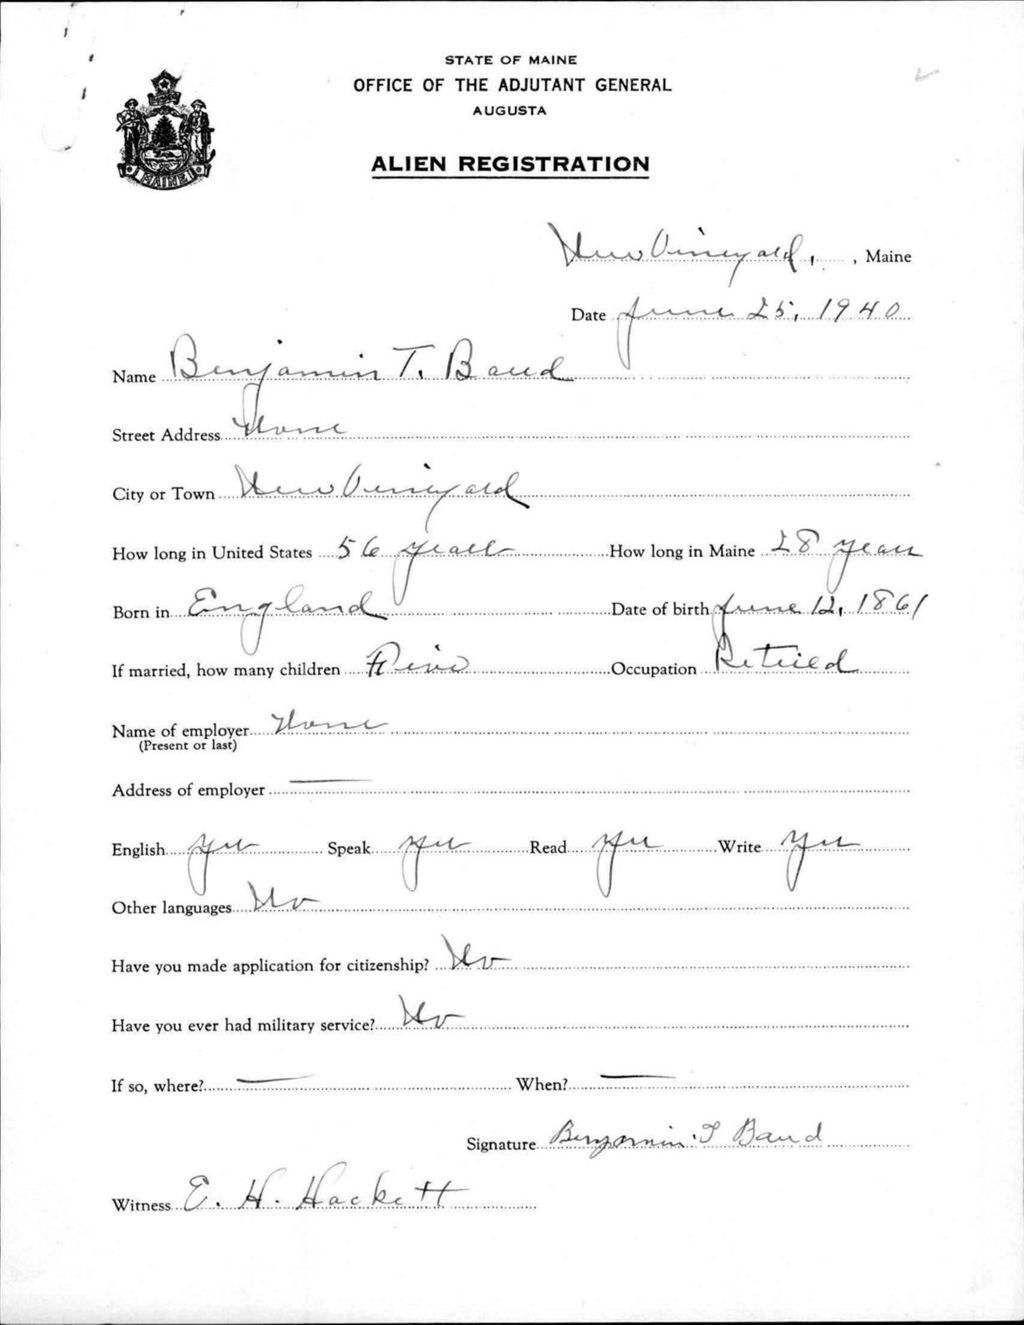 STATE OF MAINE
OFFICE OF THE ADJUTANT GENERAL
AUGUSTA
MAINE
ALIEN REGISTRATION
New Vineyard, , Maine
Date June 25, 1940
Name Benjamin T. Baud
Street Address None
City or Town New Vineyard
How long in United States 56 years How long in Maine 28 years
Born in England Date of birth June 12, 1861
If married, how many children Five Occupation Retired
Name of employer None
(Present or last)
Address of employer —
English Yes Speak yes Read yes Write yes
Other languages No
Have you made application for citizenship? No
Have you ever had military service? No
If so, where? — When? —
Signature Benjamin T Baud
Witness E. H. Hackett